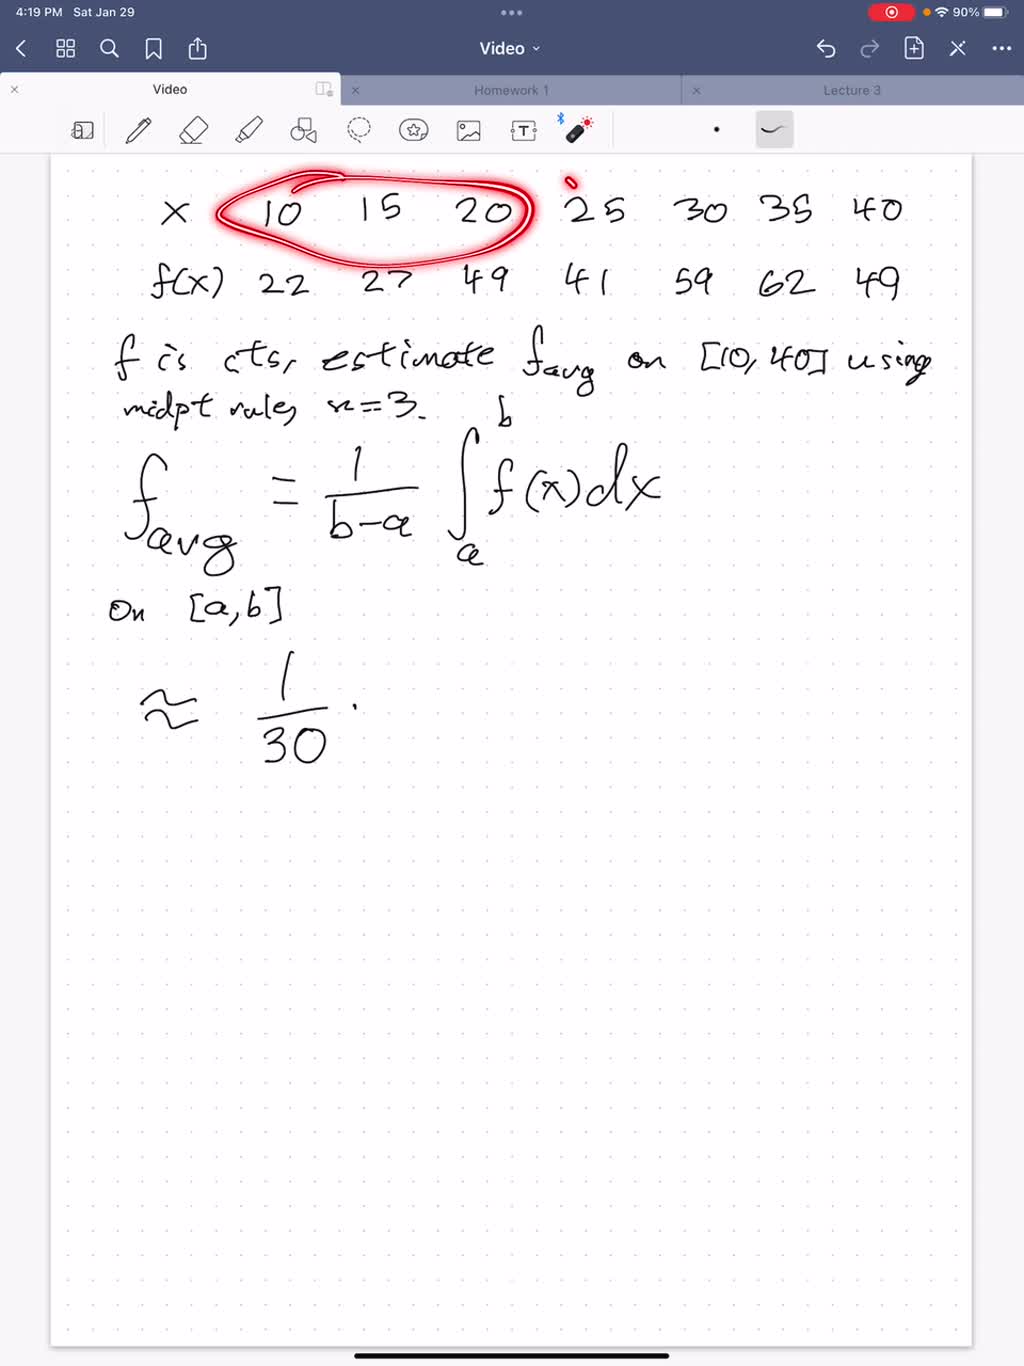 4:19 PM Sat Jan 29 90%
Video
Video Homework 1 Lecture 3
x 10 15 20 25 30 35 40
f(x) 22 27 49 41 59 62 49
f is cts, estimate f_avg on [10, 40] using
midpt rule, n=3.
f_avg = 1/(b-a) ∫_a^b f(x)dx
on [a,b]
≈ 1/30 ·